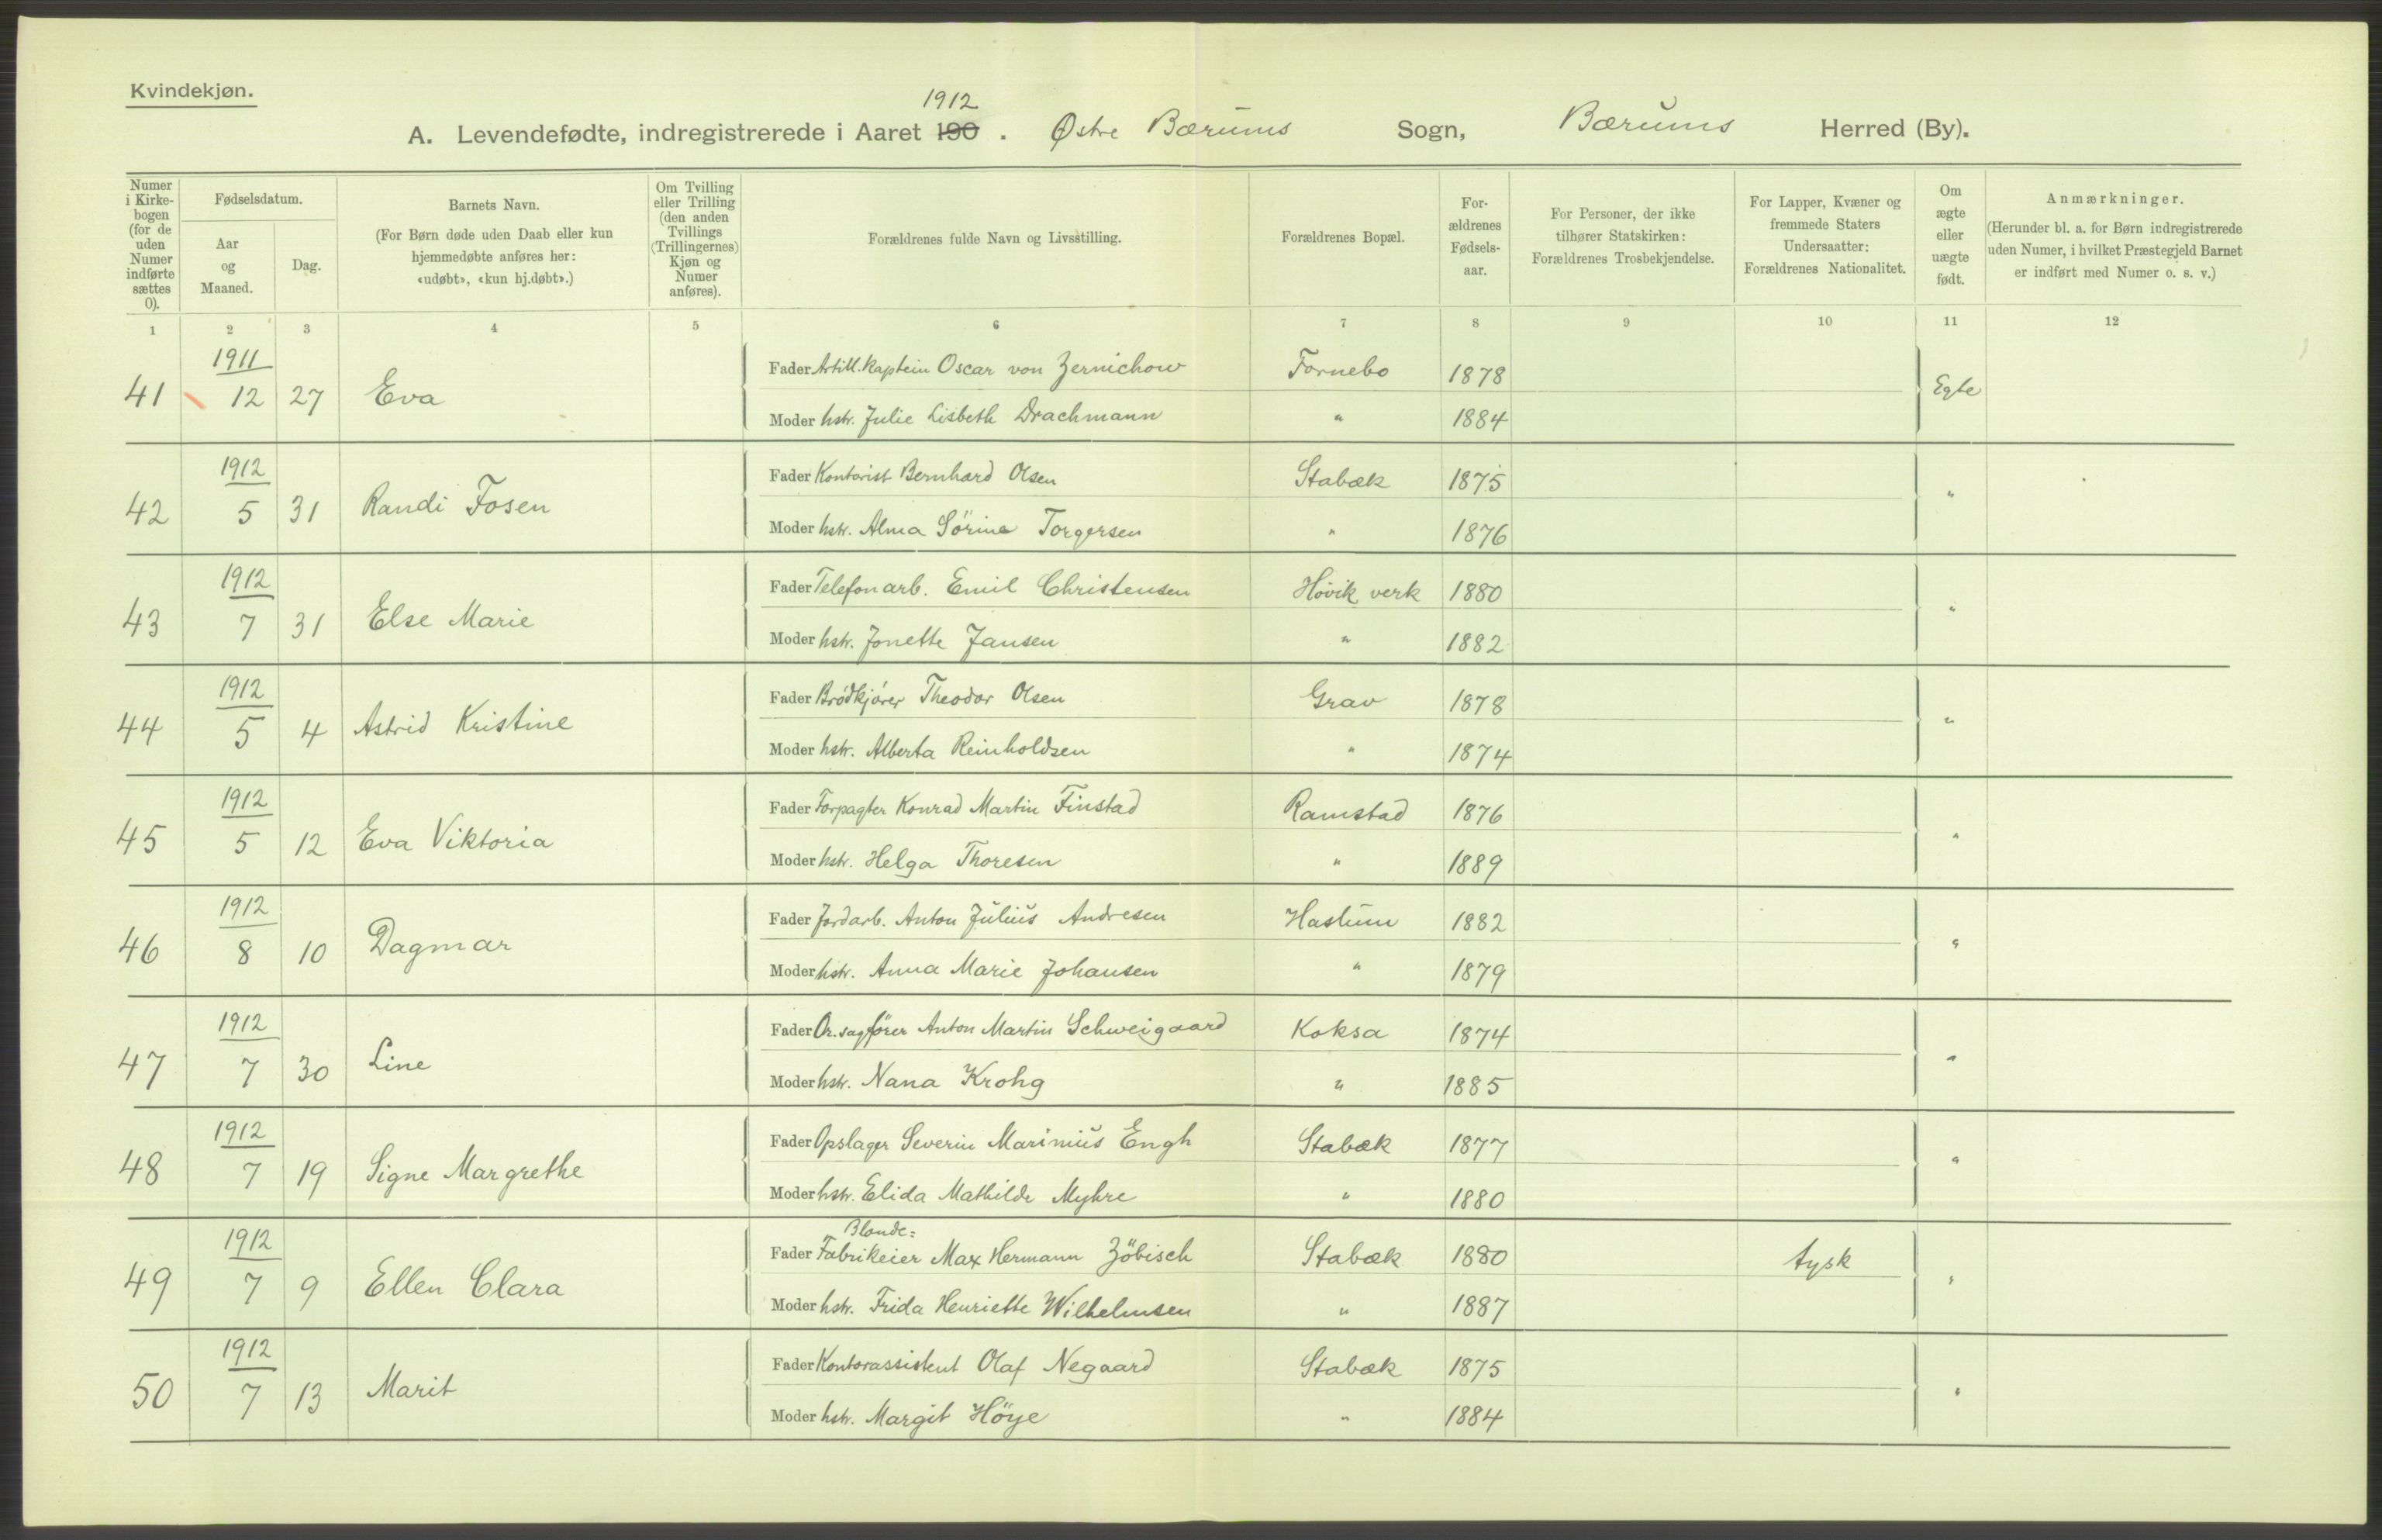 Kvindekjøn.
1912
A. Levendefødte, indregistrerede i Aaret 190 . Østre Bærums Sogn, Bærums Herred (By).
Numer i Kirke-bogen (for de uden Numer indførte sættes 0).
Fødselsdatum.
Aar og Maaned.
Dag.
Barnets Navn.
(For Børn døde uden Daab eller kun
hjemmedøbte anføres her:
«udøbt», «kun hj.døbt».)
Om Tvilling
eller Trilling
(den anden
Tvillings
(Trillingernes)
Kjøn og
Numer
anføres).
Forældrenes fulde Navn og Livsstilling.
Forældrenes Bopæl.
For-
ældrenes
Fødsels-
aar.
For Personer, der ikke
tilhører Statskirken:
Forældrenes Trosbekjendelse.
For Lapper, Kvæner og
fremmede Staters
Undersaatter:
Forældrenes Nationalitet.
Om
ægte
eller
uægte
født.
Anmærkninger.
(Herunder bl. a. for Børn indregistrerede
uden Numer, i hvilket Præstegjeld Barnet
er indført med Numer o. s. v.)
1 2 3 4 5 6 7 8 9 10 11 12
1911
41 12 27 Eva
Fader Artill. Kaptein Oscar von Zernichow Fornebo 1878 Egte
Moder hstr. Julie Lisbeth Drachmann " 1884
1912
42 5 31 Randi Fosen
Fader Kontorist Bernhard Olsen Stabæk 1875 "
Moder hstr. Alma Sörine Torgersen " 1876
1912
43 7 31 Else Marie
Fader Telefonarb. Emil Christensen Hövik verk 1880 "
Moder hstr. Jonette Jansen " 1882
1912
44 5 4 Astrid Kristine
Fader Brödkjörer Theodor Olsen Grav 1878 "
Moder hstr. Alberta Reinholdsen " 1874
1912
45 5 12 Eva Viktoria
Fader Forpagter Konrad Martin Finstad Ramstad 1876 "
Moder hstr. Helga Thoresen " 1889
1912
46 8 10 Dagmar
Fader Jordarb. Anton Julius Andresen Haslum 1882 "
Moder hstr. Anna Marie Johansen " 1879
1912
47 7 30 Line
Fader Or. sagfører Anton Martin Schweigaard Koksa 1874 "
Moder hstr. Nana Krohg " 1885
1912
48 7 19 Signe Margrethe
Fader Opslager Severin Marinius Engh Stabæk 1877 "
Moder hstr. Elida Mathilde Myhre " 1880
1912
49 7 9 Ellen Clara
Blonde=
Fader Fabrikeier Max Hermann Zöbisch Stabæk 1880 tysk "
Moder hstr. Frida Henriette Wilhelmsen " 1887
1912
50 7 13 Marit
Fader Kontorassistent Olaf Negaard Stabæk 1875 "
Moder hstr. Margit Höye " 1884